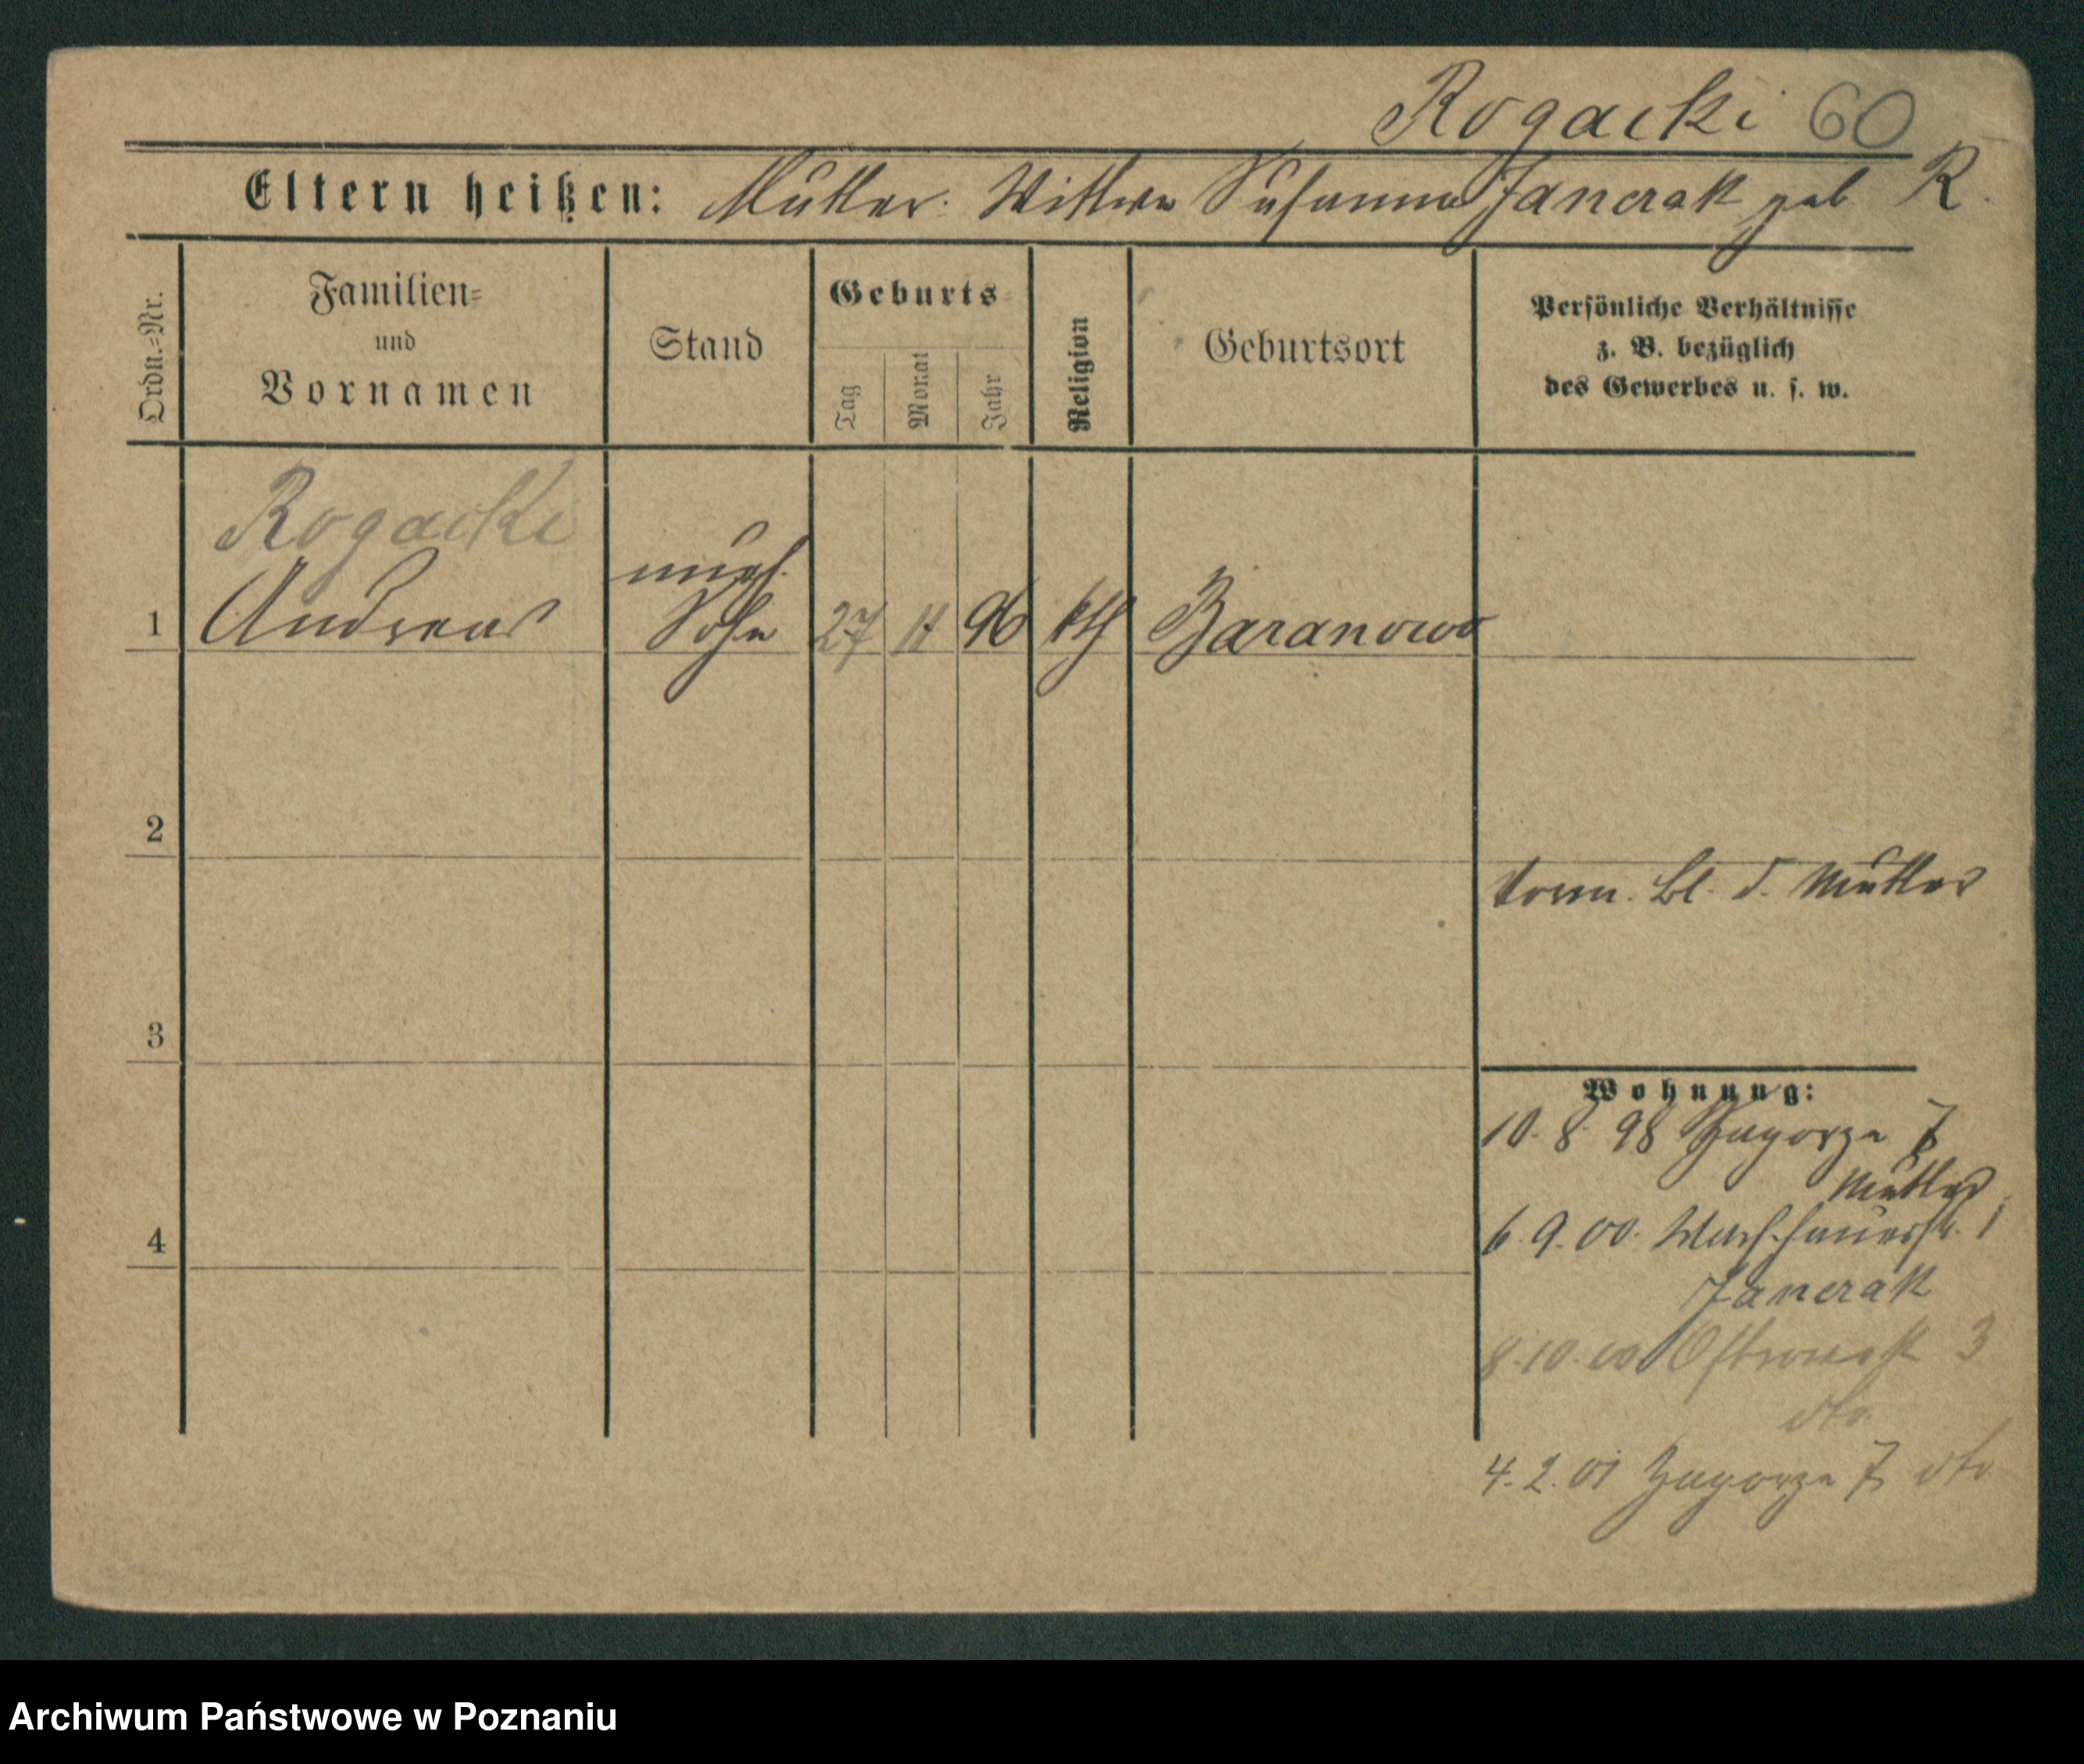 Rogacki 60
Eltern heißen: Mutter: Wittwe Susanna Janczak geb R.
Ordn.-Nr.
Familien- und Vornamen
Stand
Geburts
Tag
Monat
Jahr
Religion
Geburtsort
Persönliche Verhältnisse
z. B. bezüglich
des Gewerbes u. s. w.
Rogacki
unehl.
1 Andreas Sohn 27 11 96 kth Baranowo
2
Bl. d. Mutter
3
Wohnung:
10. 8. 98 Zagorze 7
Mutter
6. 9. 00. Warschauerstr. 1
4
Janczak
8. 10. 00 Ostrowek 3
dto
4. 2. 01 Zagorze 7 dto
Archiwum Państwowe w Poznaniu